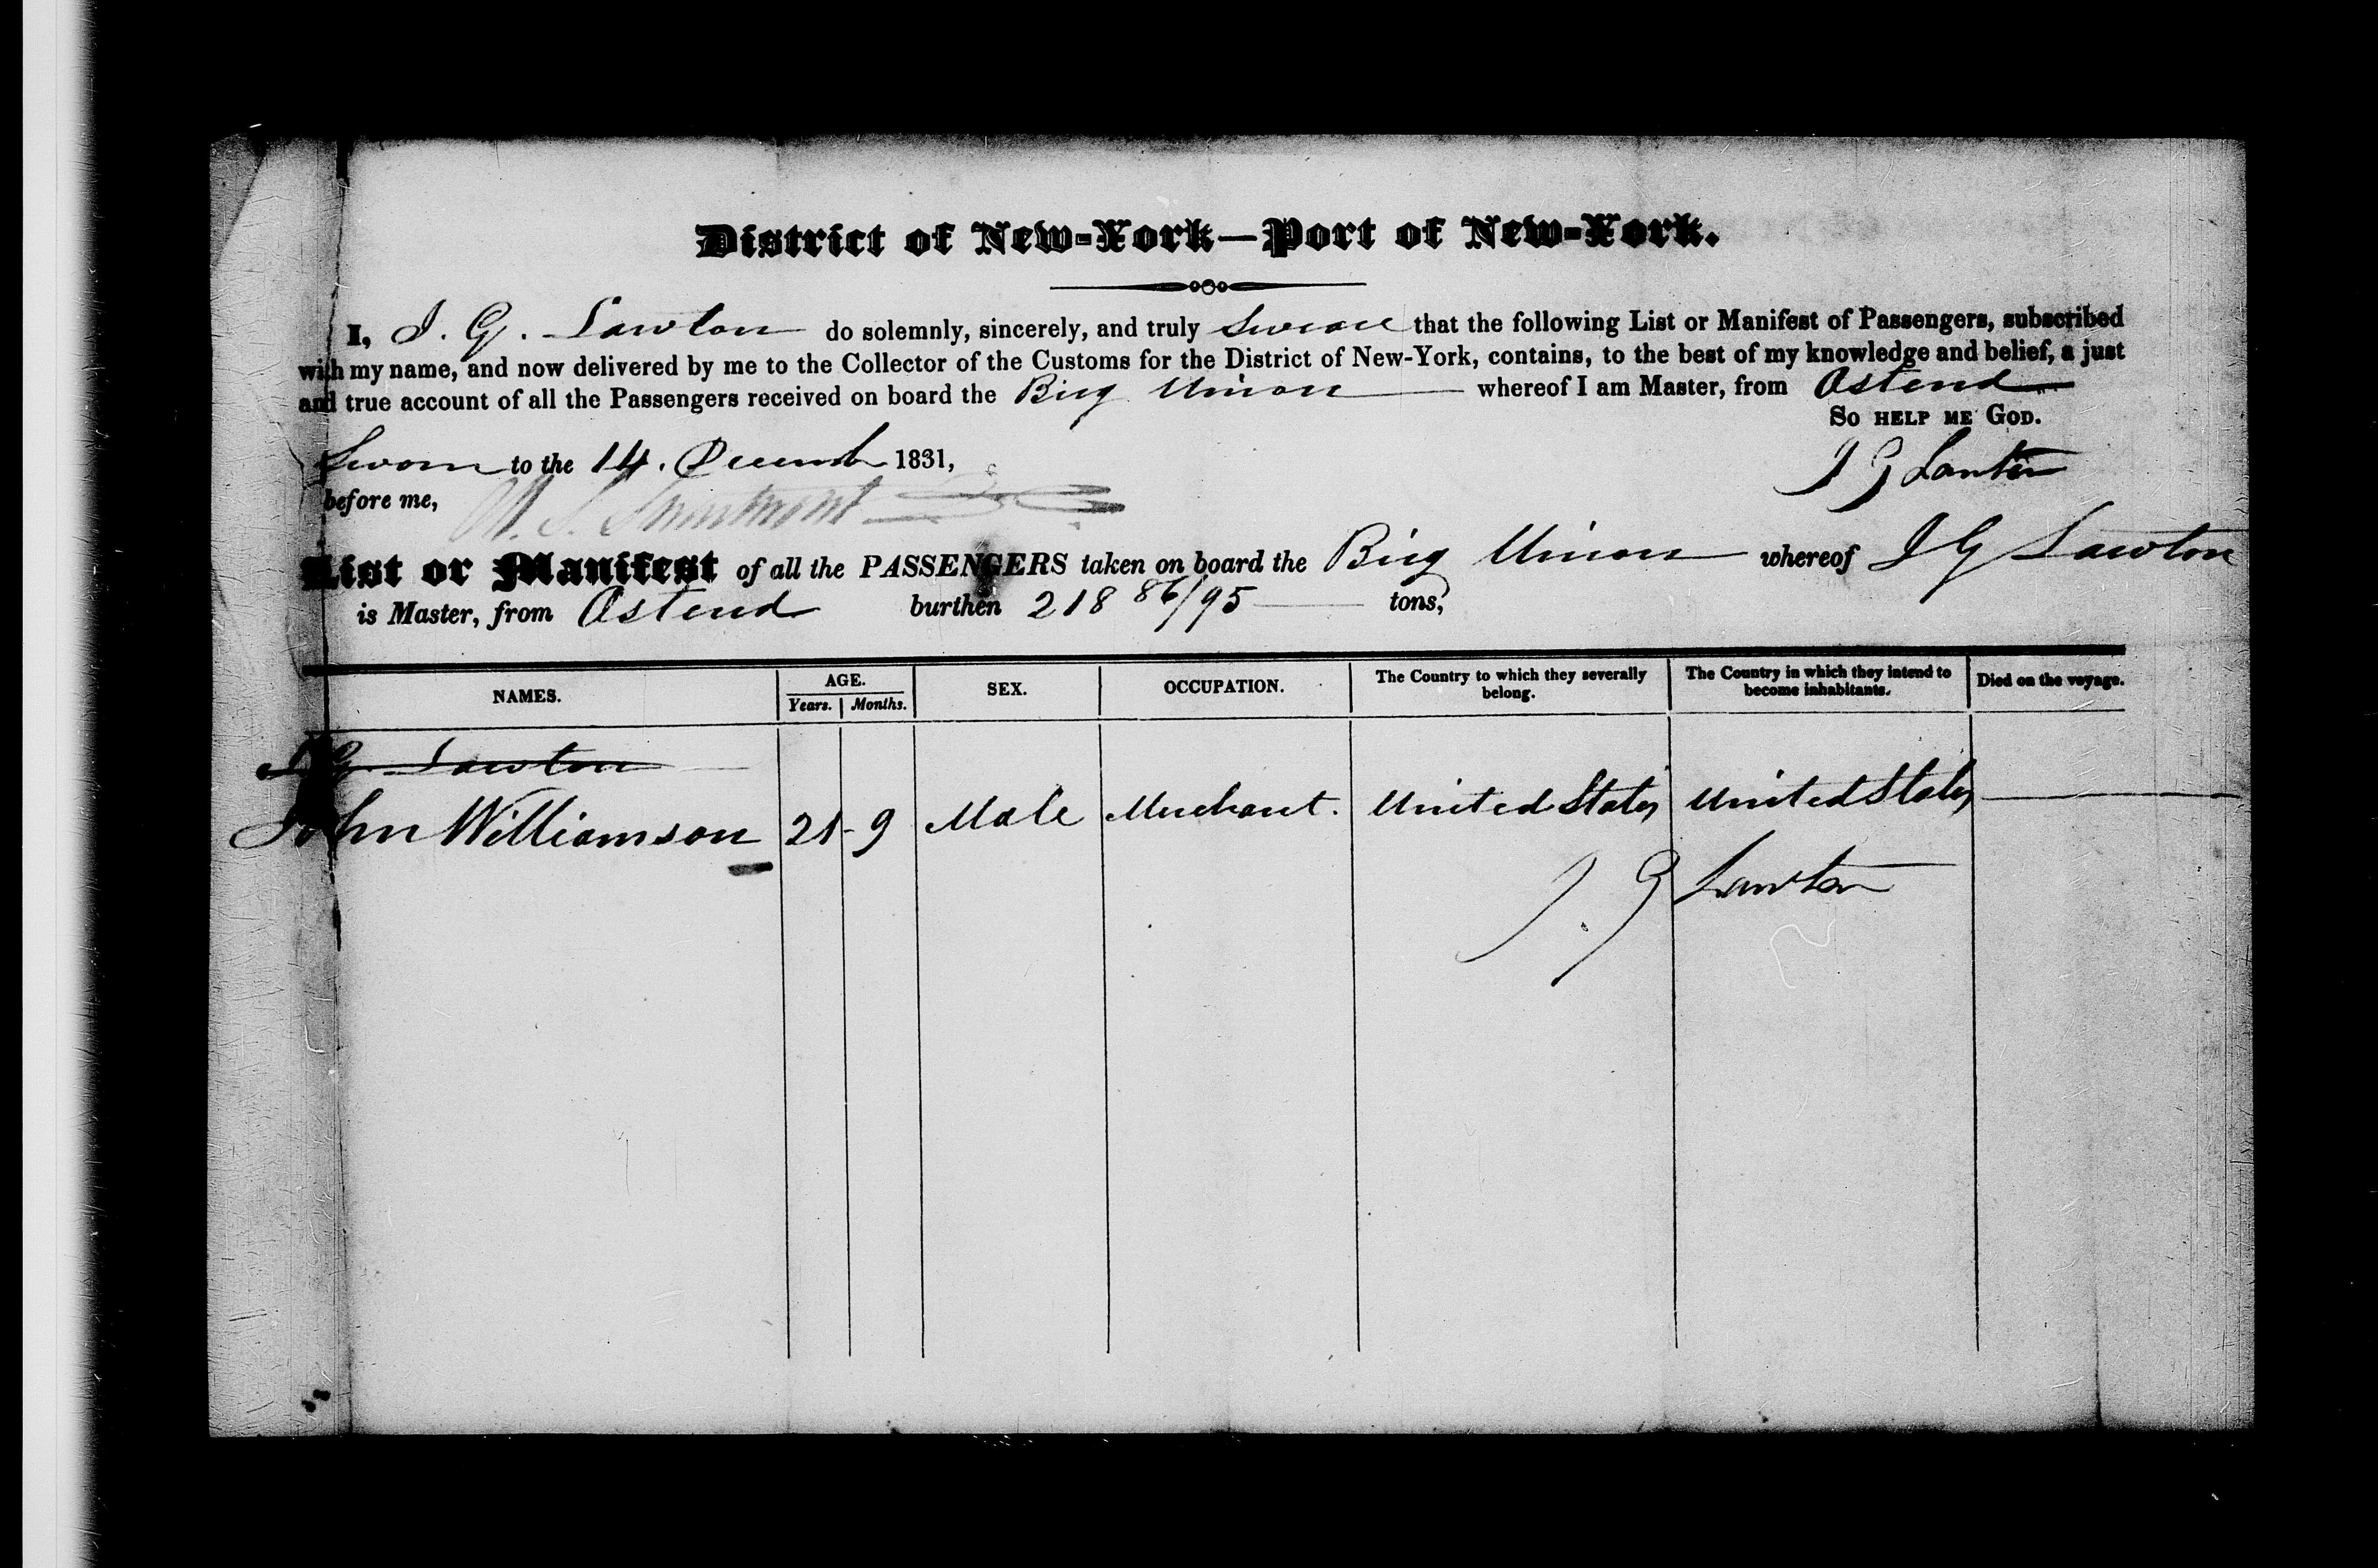 District of New-York—Port of New-York.
I, J. G. Lawton do solemnly, sincerely, and truly Swear that the following List or Manifest of Passengers, subscribed
with my name, and now delivered by me to the Collector of the Customs for the District of New-York, contains, to the best of my knowledge and belief, a just
and true account of all the Passengers received on board the Brig Union whereof I am Master, from Ostend
So HELP ME GOD.
Sworn to the 14. Decemb 1831,
J G Lawton
before me,
List or Manifest of all the PASSENGERS taken on board the Brig Union whereof J G Lawton
is Master, from Ostend burthen 218 86/95 tons,
NAMES. AGE. Years. Months. SEX. OCCUPATION. The Country to which they severally belong. The Country in which they intend to become inhabitants. Died on the voyage.
J G Lawton
John Williamson 21-9 Male Merchant. United States United States
J. G Lawton